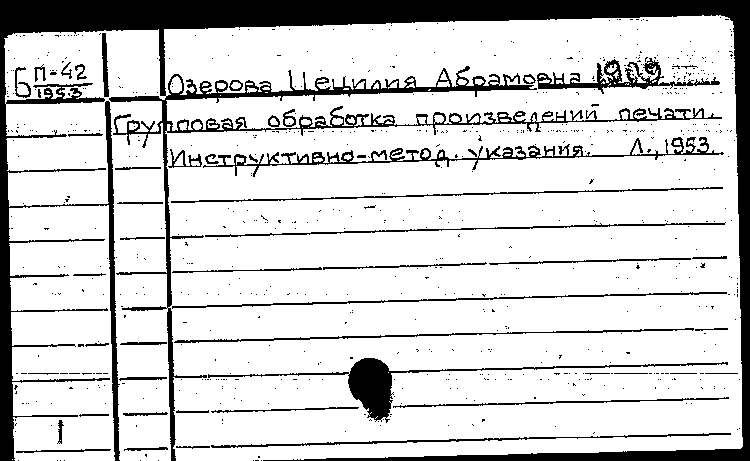 Б П-42
1953
Озерова Цецилия Абрамовна 1909
Групповая обработка произведений печати.
Инструктивно-метод. указания. Л., 1953.